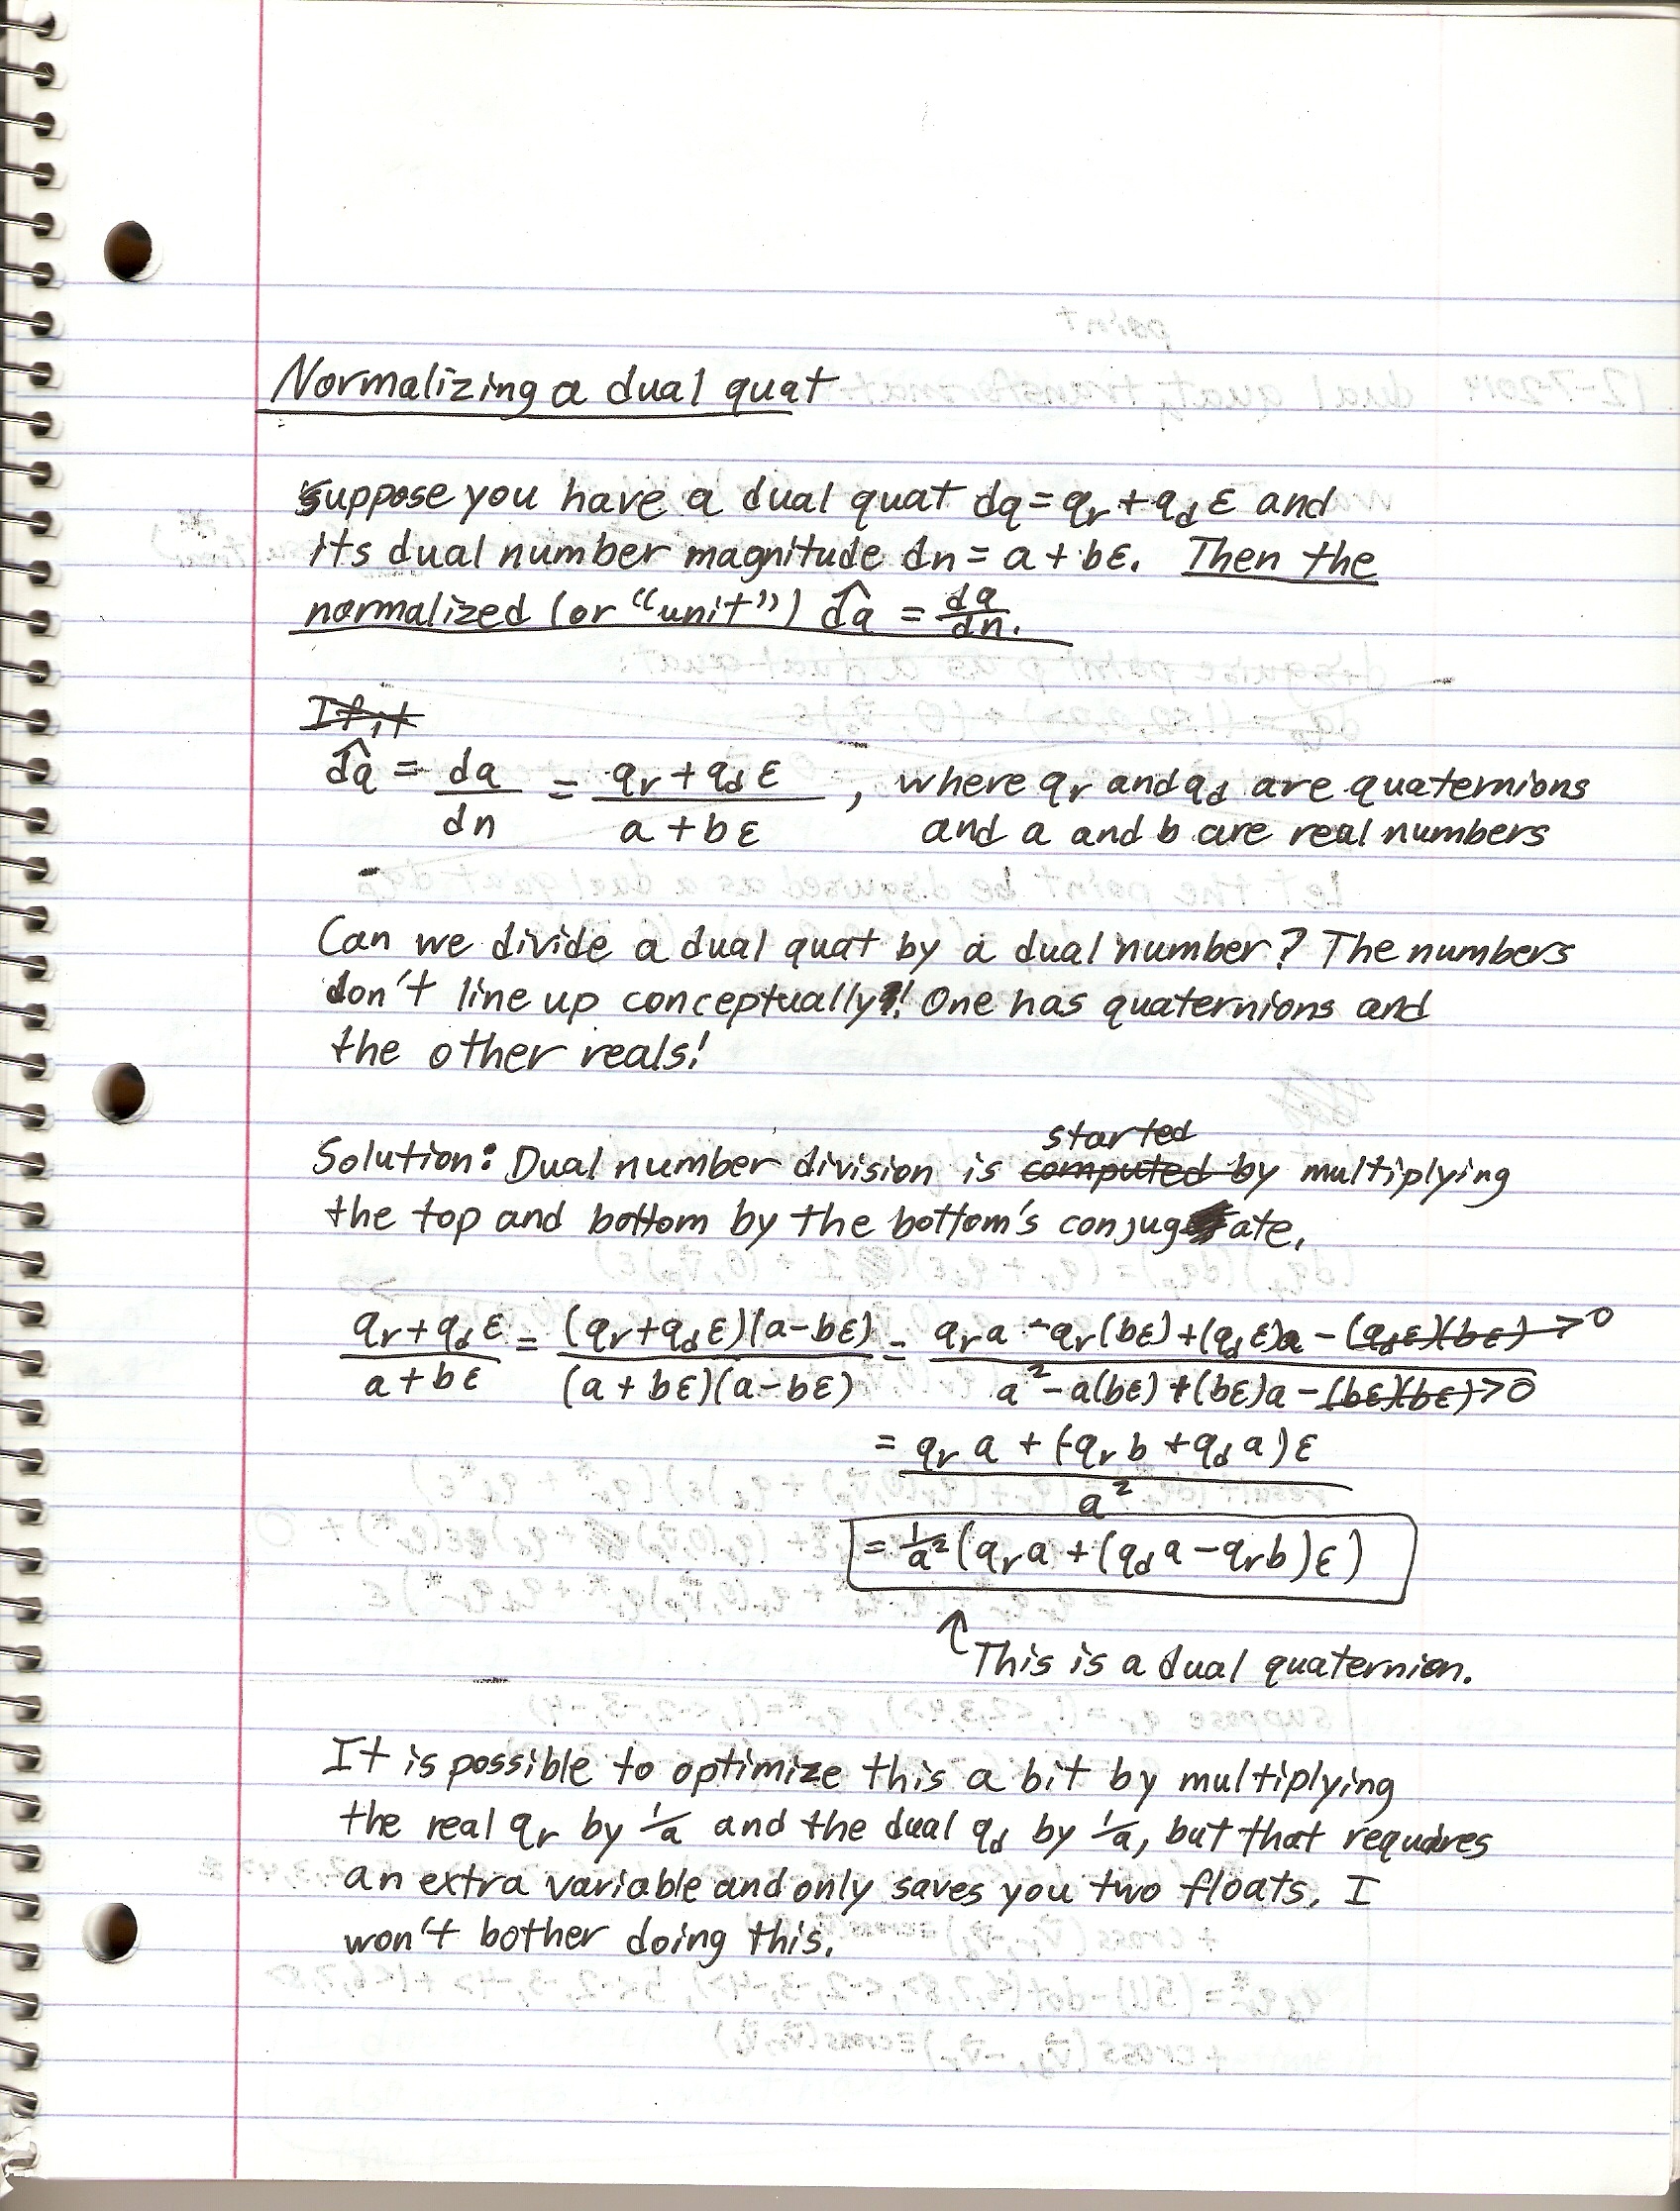 Normalizing a dual quat
Suppose you have a dual quat dq = qᵣ + q_d ε and
its dual number magnitude dn = a + bε. Then the
normalized (or “unit”) d̂q = dq/dn.
If it
d̂q = dq/dn = (qᵣ + q_d ε)/(a + bε) , where qᵣ and q_d are quaternions
and a and b are real numbers
Can we divide a dual quat by a dual number? The numbers
don't line up conceptually! One has quaternions and
the other reals!
started
Solution: Dual number division is computed by multiplying
the top and bottom by the bottom's conjugate.
(qᵣ + q_d ε)/(a + bε) = (qᵣ + q_d ε)(a - bε)/(a + bε)(a - bε) = (qᵣ a - qᵣ(bε) + (q_d ε)a - (q_d ε)(bε) → 0)/(a² - a(bε) + (bε)a - (bε)(bε) → 0)
= (qᵣ a + (-qᵣ b + q_d a)ε)/a²
= 1/a² (qᵣ a + (q_d a - qᵣ b)ε)
↑ This is a dual quaternion.
It is possible to optimize this a bit by multiplying
the real qᵣ by 1/a and the dual q_d by 1/a, but that requires
an extra variable and only saves you two floats. I
won't bother doing this.